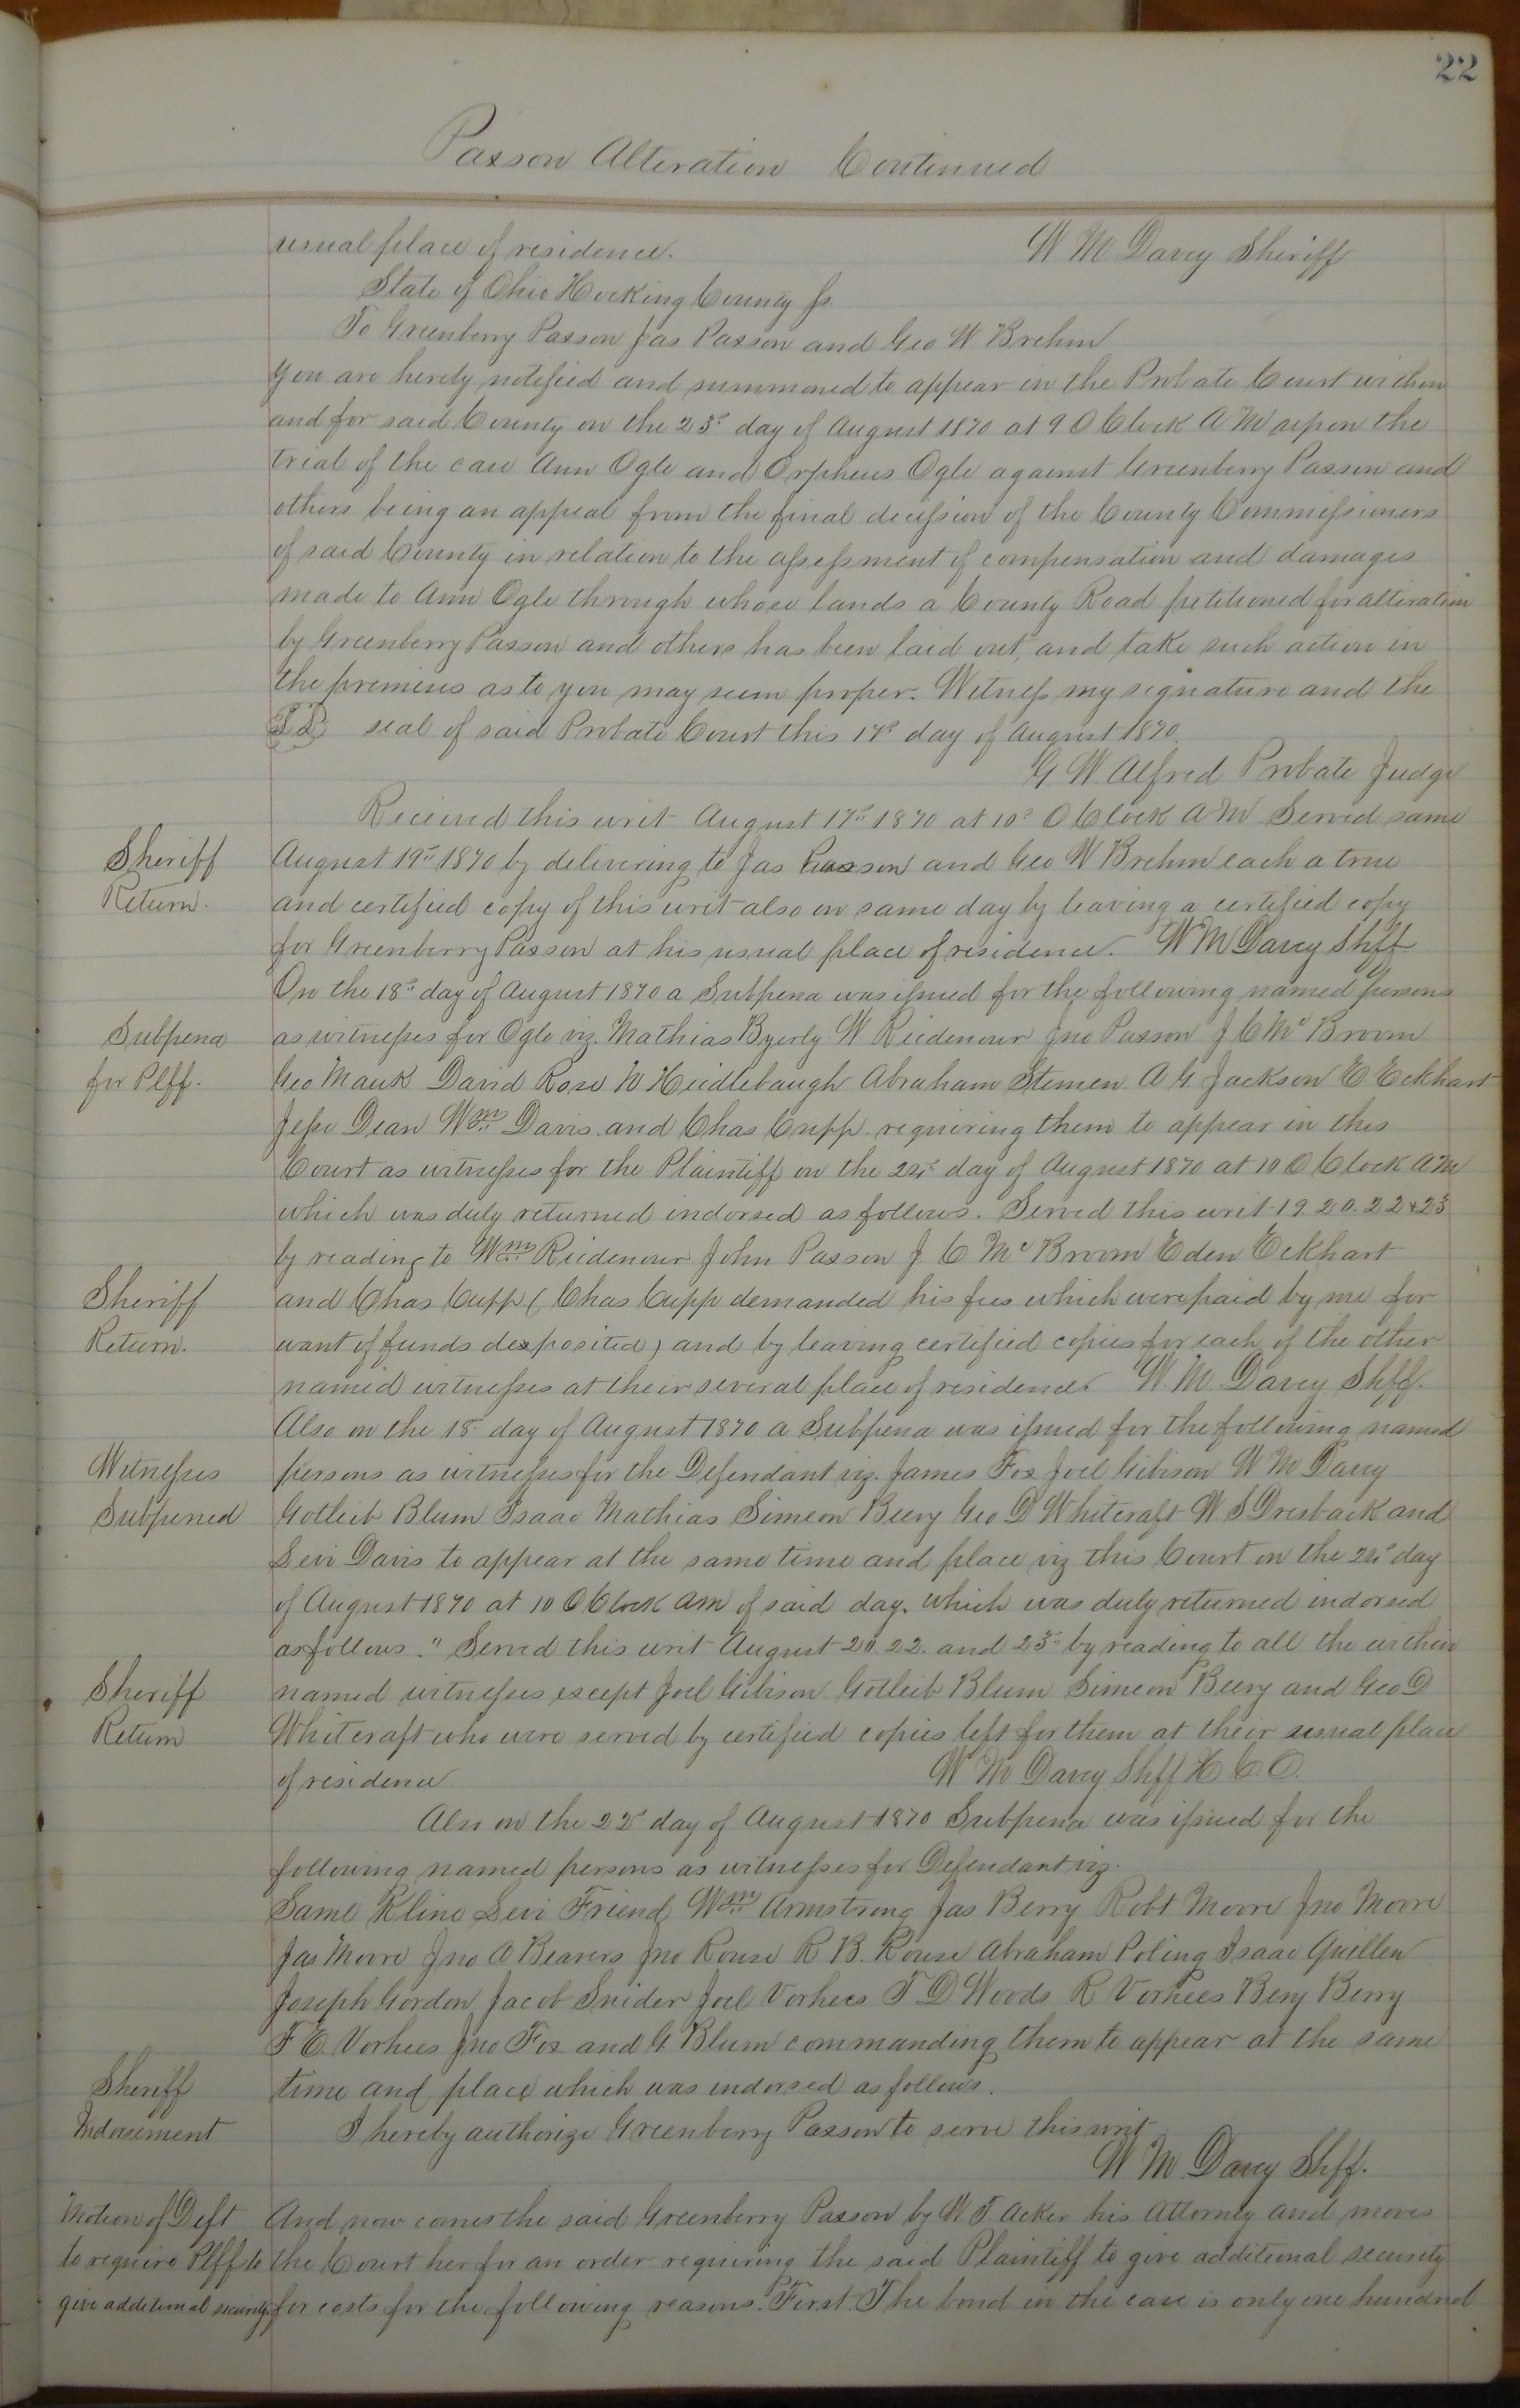 22
Paxson Alteration Continued
usual place of residence. W M Darcy Sheriff
State of Ohio Hocking County Ss.
To Greenberry Paxson Jas Paxson and Geo W Brehm
You are hereby notified and summoned to appear in the Probate Court within
and for said County on the 23d day of August 1870 at 9 O Clock A M upon the
trial of the case Ann Ogle and Orpheus Ogle against Greenberry Paxson and
others being an appeal from the final decission of the County Commissioners
of said County in relation to the assessment of compensation and damages
made to Ann Ogle through whose lands a County Road petitioned for alteration
by Greenberry Paxson and others has been laid out, and take such action in
the premises as to you may seem proper. Witness my signature and the
seal of said Probate Court this 17th day of August 1870.
G. W Alfred Probate Judge
Received this writ August 17th 1870 at 10 O Clock A M Served same
Sheriff August 19th 1870 by delivering to Jas Paxson and Geo W Brehm each a true
Return. and certified copy of this writ also on same day by leaving a certified copy
for Greenberry Paxson at his usual place of residence. W M Darcy Shff
On the 18th day of August 1870 a Subpena was issued for the following named persons
Subpena as witnesses for Ogle viz. Mathias Byerly W Riedenour Jno Paxson J C Mc Broom
for Plff. Geo Mauk David Rose W Heidlebaugh Abraham Stemen A G Jackson E Eckhart
Jesse Dean Wm Davis and Chas Cupp requiring them to appear in this
Court as witnesses for the Plaintiff on the day of August 1870 at 10 O Clock A M
which was duly returned indorsed as follows. Served this writ 19. 20. 22 & 23
by reading to Wm Riedenour John Paxson J C Mc Broom Eden Eckhart
Sheriff and Chas Cupp (Chas Cupp demanded his fees which were paid by me for
Return. want of funds desposited) and by leaving certified copies for each of the other
named witnesses at their several place of residence. W. M. Darcy Shff.
Also on the 18 day of August 1870 a Subpena was issued for the following named
Witnesses persons as witnesses for the Defendant viz. James Fox Joel Gibson W M Darcy
Subpened Gotleib Blum Isaac Mathias Simeon Beery Geo D Whitcraft W S Dresback and
Levi Davis to appear at the same time and place viz this Court on the day
of August 1870 at 10 O Clock am of said day. which was duly returned indorsed
as follows. " Served this writ August 20. 22. and 23d by reading to all the within
Sheriff named witnesses except Joel Gibson Gotleib Blum Simeon Beery and Geo D
Return Whitcraft who were served by certified copies left for them at their usual place
of residence. W M Darcy Shff H. C. O.
Also on the 22d day of August 1870 Subpena was issued for the
following named persons as witnesses for Defendant viz.
Saml Kline Levi Friend Wm Armstrong Jas Berry Robt Moore Jno Moore
Jas Moore Jno A Beavers Jno Rouse R B. Rouse Abraham Poling Isaac Quillen
Joseph Gordon Jacob Snider Joel Vorhees T D Woods R Vorhees Benj Berry
F E. Vorhees Jno Fox and G Blum commanding them to appear at the same
Sheriff time and place which was indorsed as follows.
Indorsement I hereby authorize Greenberry Paxson to serve this writ
W M Darcy Shff.
Motion of Deft And now comes the said Greenberry Paxson by W. T. Acker his Attorney and moves
to require Plff to the Court her for an order requiring the said Plaintiff to give additional security
give additional security for costs for the following reasons. First. The bond in the case is only one hundred